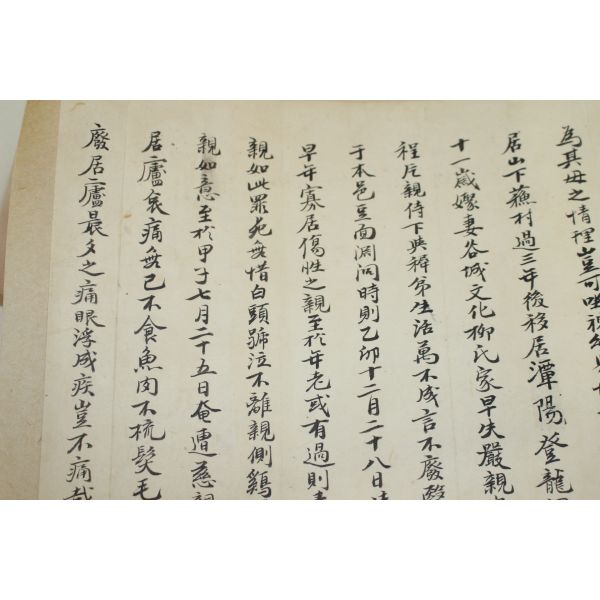 為其母之情理豈可
居山下蘓村過三年後移居潭陽登龍
十一歲娶妻谷城文化柳氏家早失嚴親
程斥親侍下與稚弟生活萬不成言不廢
于本邑豆面渕洞時則乙卯十二月二十八日
早年寡居傷性之親至於年老或有過則
親如此罪死無惜白頭號泣不離親側鷄
親如意至於甲子七月二十五日奄遭慈
居廬哀痛無已不食魚肉不梳髮毛
廢居廬最多之痛眼浮成疾豈不痛哉